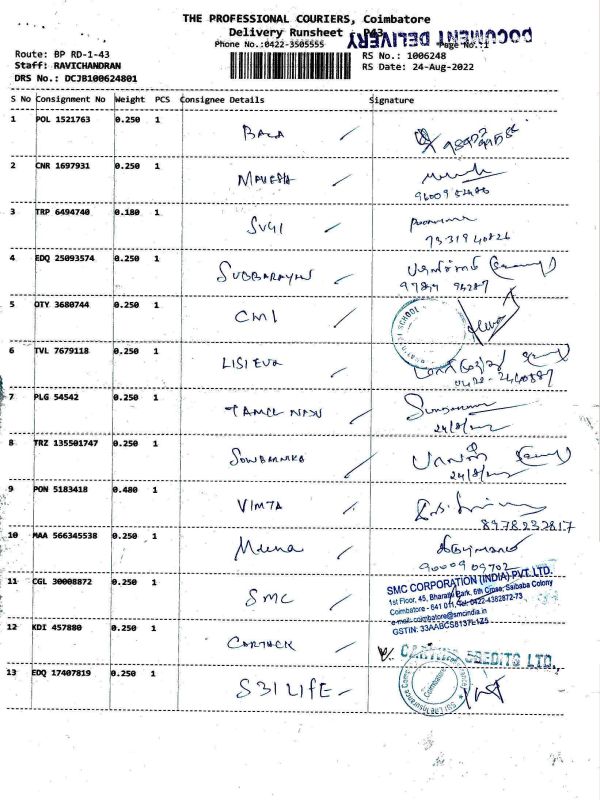 THE PROFESSIONAL COURIERS, Coimbatore
Delivery Runsheet - P43
DOCUMENT DELIVERY
Phone No.:0422-3505555 Page No.:1
Route: BP RD-1-43 RS No.: 1006248
Staff: RAVICHANDRAN RS Date: 24-Aug-2022
DRS No.: DCJB100624801
S No Consignment No Weight PCS Consignee Details Signature
1 POL 1521763 0.250 1 BALA
2 CNR 1697931 0.250 1
3 TRP 6494740 0.180 1 SUGI
7331940826
4 EDQ 25093574 0.250 1 SUBBARAYAN
5 OTY 3680744 0.250 1 CMI
SCHOOL
6 TVL 7679118 0.250 1 LISIEUX
0422-2440887
7 PLG 54542 0.250 1 TAMIL NADU
24/8/2022
8 TRZ 135501747 0.250 1
24/8/2022
9 PON 5183418 0.480 1 VIMTA
8978237817
10 MAA 566345538 0.250 1 Meena
9000909702
11 CGL 30008872 0.250 1 SMC
SMC CORPORATION (INDIA) PVT. LTD.
1st Floor, 45, Bharathi Park, 6th Cross, Saibaba Colony
Coimbatore - 641 011, Tel: 0422-4382872-73
e-mail: coimbatore@smcindia.in
GSTIN: 33AABCS8137L1Z5
12 KDI 457880 0.250 1
CREDITS LTD.
13 EDQ 17407819 0.250 1 SBI LIFE
SBI Life Insurance Comp
Coimbatore